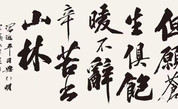 但愿蒼
生俱飽
暖不辭
辛苦出
山林